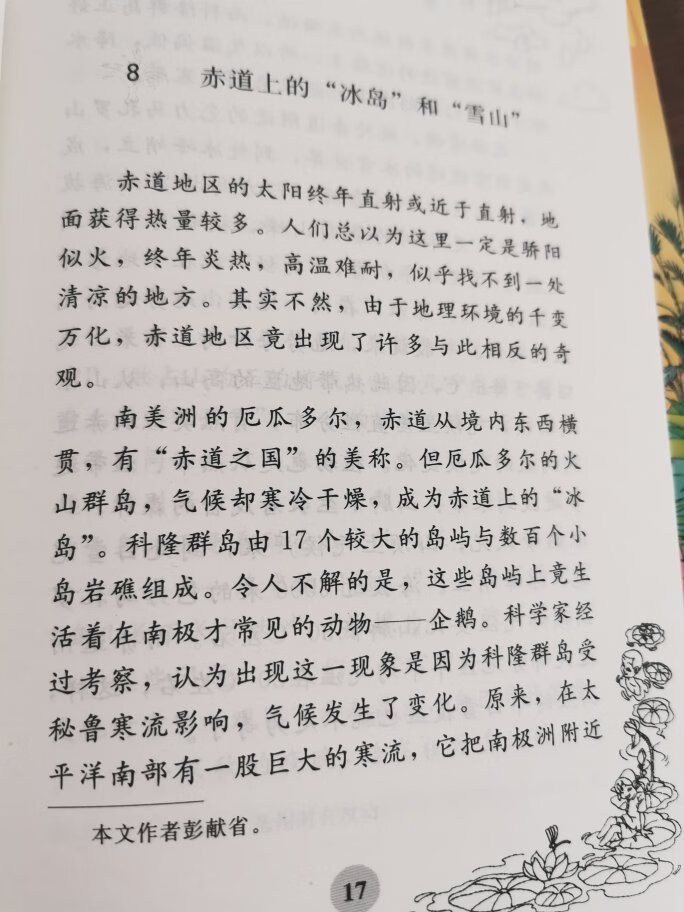 8 赤道上的“冰岛”和“雪山”
赤道地区的太阳终年直射或近于直射，地
面获得热量较多。人们总以为这里一定是骄阳
似火，终年炎热，高温难耐，似乎找不到一处
清凉的地方。其实不然，由于地理环境的千变
万化，赤道地区竟出现了许多与此相反的奇
观。
南美洲的厄瓜多尔，赤道从境内东西横
贯，有“赤道之国”的美称。但厄瓜多尔的火
山群岛，气候却寒冷干燥，成为赤道上的“冰
岛”。科隆群岛由17个较大的岛屿与数百个小
岛岩礁组成。令人不解的是，这些岛屿上竟生
活着在南极才常见的动物——企鹅。科学家经
过考察，认为出现这一现象是因为科隆群岛受
秘鲁寒流影响，气候发生了变化。原来，在太
平洋南部有一股巨大的寒流，它把南极洲附近
本文作者彭献省。
17